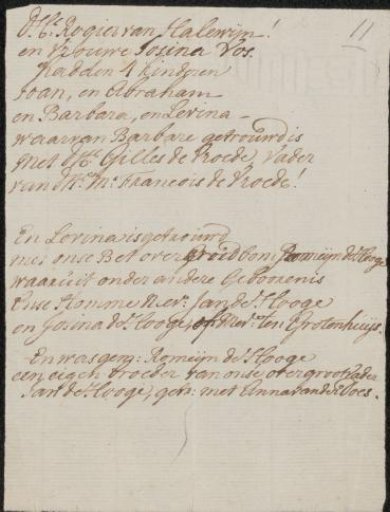 11
d'Hr. Rogier van Halewijn!
en vrouwe Josina Vos.
hadden 4 kinderen
Joan, en Abraham
en Barbara, en Levina –
waarvan Barbare getrouwd is
met d'Hr. Gilles de Vroede, vader
van d'Hr. Mr. Francois de Vroede!
En Levina is getrouwd
met onse Bet over Romeijn de Hooge
waaruit onder andere Geboren is
Onse Homme Jan de Hooge
en Josina de Hooge, ten Grotenhuijs.
En was gem: Romeijn de Hooge
een eigen broeder van onse overgrootvader
Jan de Hooge, getr: met Anna van der Does.